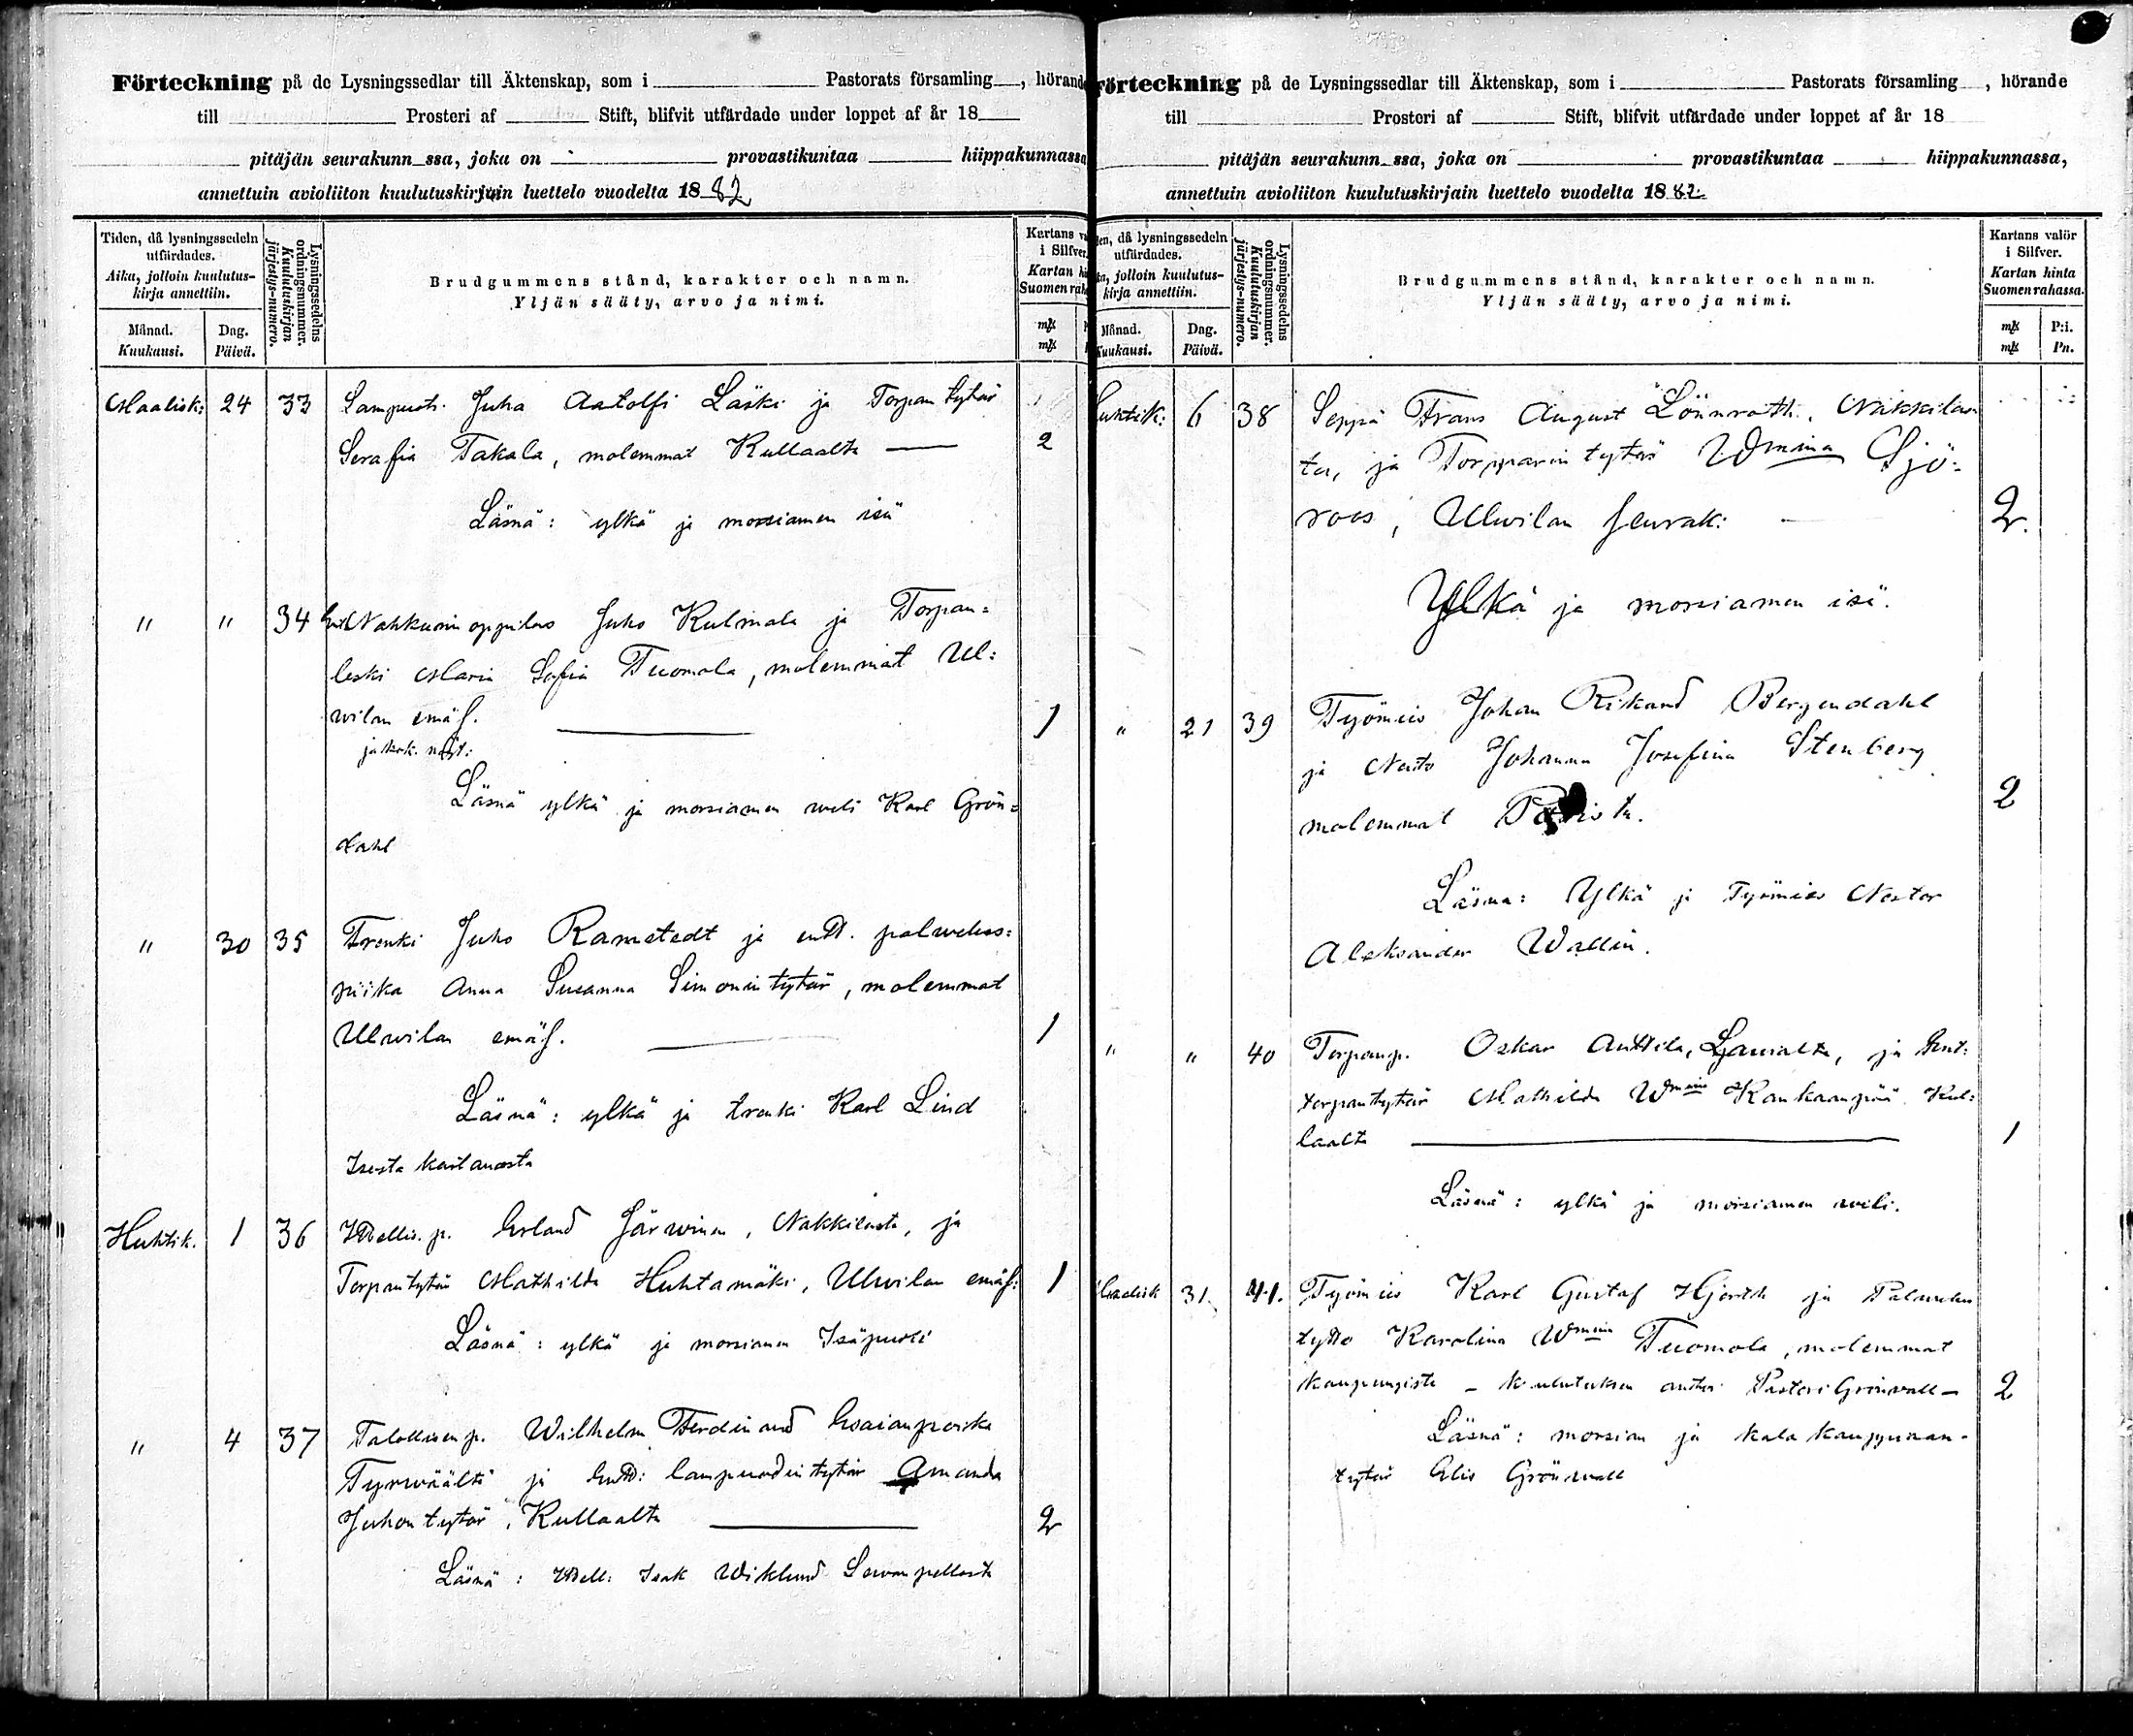 Förteckning på de Lysningssedlar till Äktenskap, som i Pastorats församling, hörande
till Prosteri af Stift, blifvit utfärdade under loppet af år 18
pitäjän seurakunn ssa, joka on provastikuntaa hiippakunnassa
annettuin avioliiton kuulutuskirjain luettelo vuodelta 1882
Tiden, då lysningssedeln utfärdades.
Aika, jolloin kuulutus-kirja annettiin.
Månad. Dag.
Kuukausi. Päivä.
Lysningssedelns ordningsnummer.
Kuulutuskirjan järjestys-numero.
Brudgummens stånd, karakter och namn.
Yljän sääty, arvo ja nimi.
Kartans
i Silfver.
Kartan
Suomen
mk
mk
Maalisk: 24 33 Lampuoti. Juha Aatolfi Läski ja Torpan tytär
Serafia Takala, molemmat Kullaalta — 2
Läsnä: ylkä ja morsiamen isä
" " 34 Nahkurin oppilas Juho Kulmala ja Torpan=
leski Maria Sofia Tuomola, molemmat Ul:
wilan emäs. — 1
Läsnä ylkä ja morsiamen weli Karl Grön=
dahl
" 30 35 Trenki Juho Ramstedt ja entt. palwelus=
piika Anna Susanna Simonin tytär, molemmat
Ulwilan emäs. — 1
Läsnä: ylkä ja trenki Karl Lind
Isosta kartanosta
Huhtik. 1 36 Itsellis. p. Erland Järwinen, Nakkilasta, ja
Torpan tytär Mathilda Huhtamäki, Ulwilan emäs: 1
Läsnä: ylkä ja morsiamen Isäpuoli
" 4 37 Talollisen p. Wilhelm Ferdinand Esaianpoika
Tyrwäältä ja Entt: lampuodin tytär Amanda
Juhon tytär, Kullaalta — 2
Läsnä: Itsell: Isak Wiklund
Förteckning på de Lysningssedlar till Äktenskap, som i Pastorats församling, hörande
till Prosteri af Stift, blifvit utfärdade under loppet af år 18
pitäjän seurakunn ssa, joka on provastikuntaa hiippakunnassa,
annettuin avioliiton kuulutuskirjain luettelo vuodelta 1882.
då lysningssedeln utfärdades.
jolloin kuulutus-kirja annettiin.
Månad. Dag.
Kuukausi. Päivä.
Lysningssedelns ordningsnummer.
Kuulutuskirjan järjestys-numero.
Brudgummens stånd, karakter och namn.
Yljän sääty, arvo ja nimi.
Kartans valör
i Silfver.
Kartan hinta
Suomen rahassa.
mk P:i.
mk Pn.
Huhtik: 6 38 Seppä Frans August Lönnroth, Nakkilas
ta, ja Torpparin tytär Wmina Sjö=
roos, Ulwilan seurak: 2.
Ylkä ja morsiamen isä.
" 21 39 Työmies Johan Rikard Bergendahl
ja Neito Johanna Josefina Stenberg
molemmat 2
Läsnä: Ylkä ja Työmies Nestor
Aleksander Wallin.
" " 40 Torpanp. Oskar Anttila, Lauvialta, ja Ent:
torpan tytär Mathilda Wmina Kankaanpää Kul=
laalta — 1
Läsnä: ylkä ja morsiamen weli.
Maalisk 31. 41. Työmies Karl Gustaf Hjorth ja Palwelus
tyttö Karolina Wmina Tuomola, molemmat
kaupungista – kuulutuksen antoi Pastori Grönwall – 2
Läsnä: morsian ja kala kauppiaan-
tytär Elis Grönwall